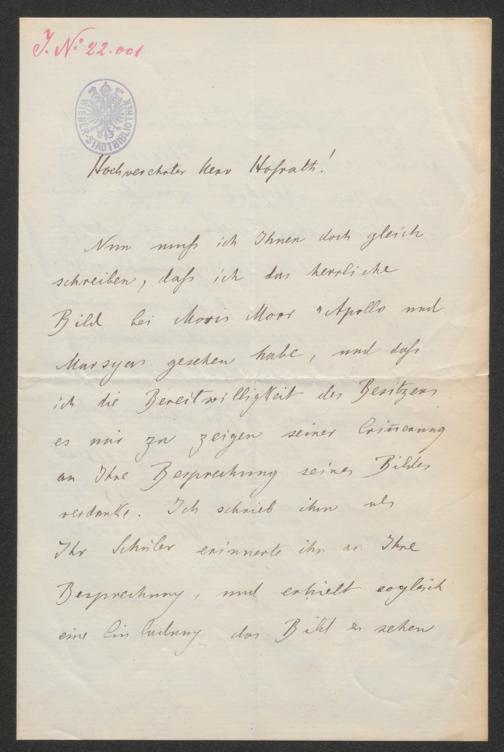 J. N° 22.001
WIENER-STADTBIBLIOTHEK
Hochverehrter Herr Hofrath!
Nun muß ich Ihnen doch gleich
schreiben, daß ich das herrliche
Bild bei Moris Moor "Apollo und
Marsyas gesehen habe, und daß
ich die Bereitwilligkeit des Besitzers
es mir zu zeigen seiner Erinnerung
an Ihre Besprechung seines Bildes
verdanke. Ich schrieb ihm als
Ihr Schüler erinnerte ihn an Ihre
Besprechung, und erhielt sogleich
eine Einladung das Bild zu sehen